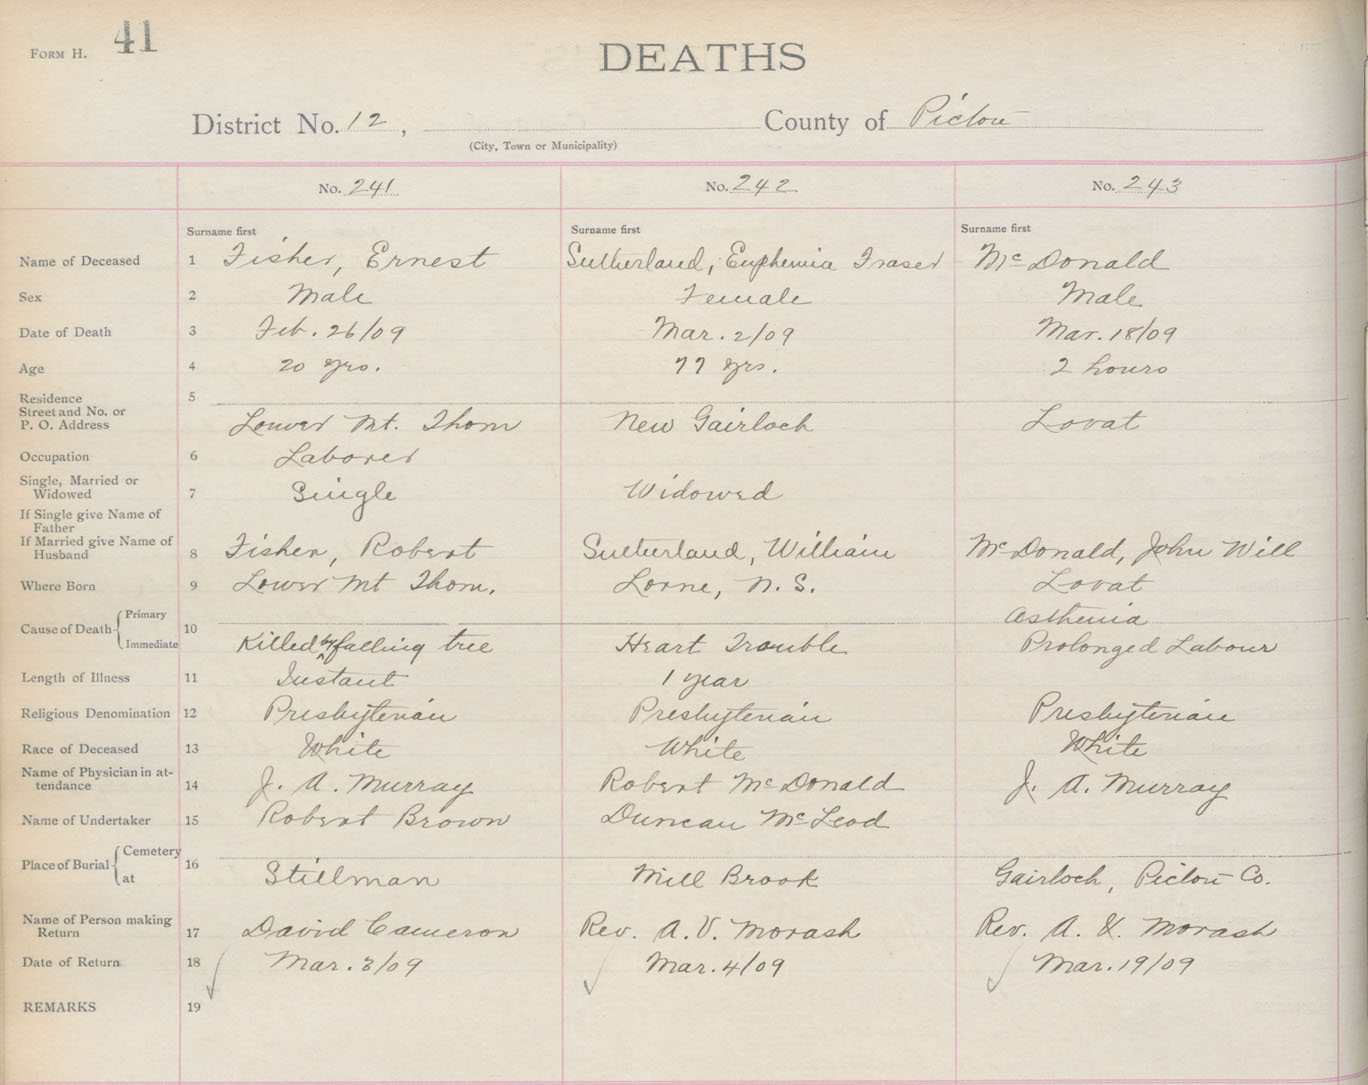 FORM H. 41
DEATHS
District No. 12, County of Pictou
(City, Town or Municipality)
No. 241 No. 242 No. 243
Surname first Surname first Surname first
Name of Deceased 1 Fisher, Ernest Sutherland, Euphemia Fraser McDonald
Sex 2 Male Female Male
Date of Death 3 Feb. 26/09 Mar. 2/09 Mar. 18/09
Age 4 20 yrs. 77 yrs. 2 hours
Residence 5
Street and No. or
P. O. Address Lower Mt. Thom New Gairloch Lovat
Occupation 6 Laborer
Single, Married or
Widowed 7 Single Widowed
If Single give Name of
Father
If Married give Name of
Husband 8 Fisher, Robert Sutherland, William McDonald, John Will
Where Born 9 Lower Mt Thom. Lorne, N.S. Lovat
Cause of Death Primary 10 Asthenia
Immediate Killed by falling tree Heart Trouble Prolonged Labour
Length of Illness 11 Instant 1 year
Religious Denomination 12 Presbyterian Presbyterian Presbyterian
Race of Deceased 13 White White White
Name of Physician in at-
tendance 14 J. A. Murray Robert McDonald J. A. Murray
Name of Undertaker 15 Robert Brown Duncan McLeod
Place of Burial Cemetery 16
at Stillman Mill Brook Gairloch, Pictou Co.
Name of Person making
Return 17 David Cameron Rev. A. V. Morash Rev. A. V. Morash
Date of Return 18 Mar. 3/09 Mar. 4/09 Mar. 19/09
REMARKS 19